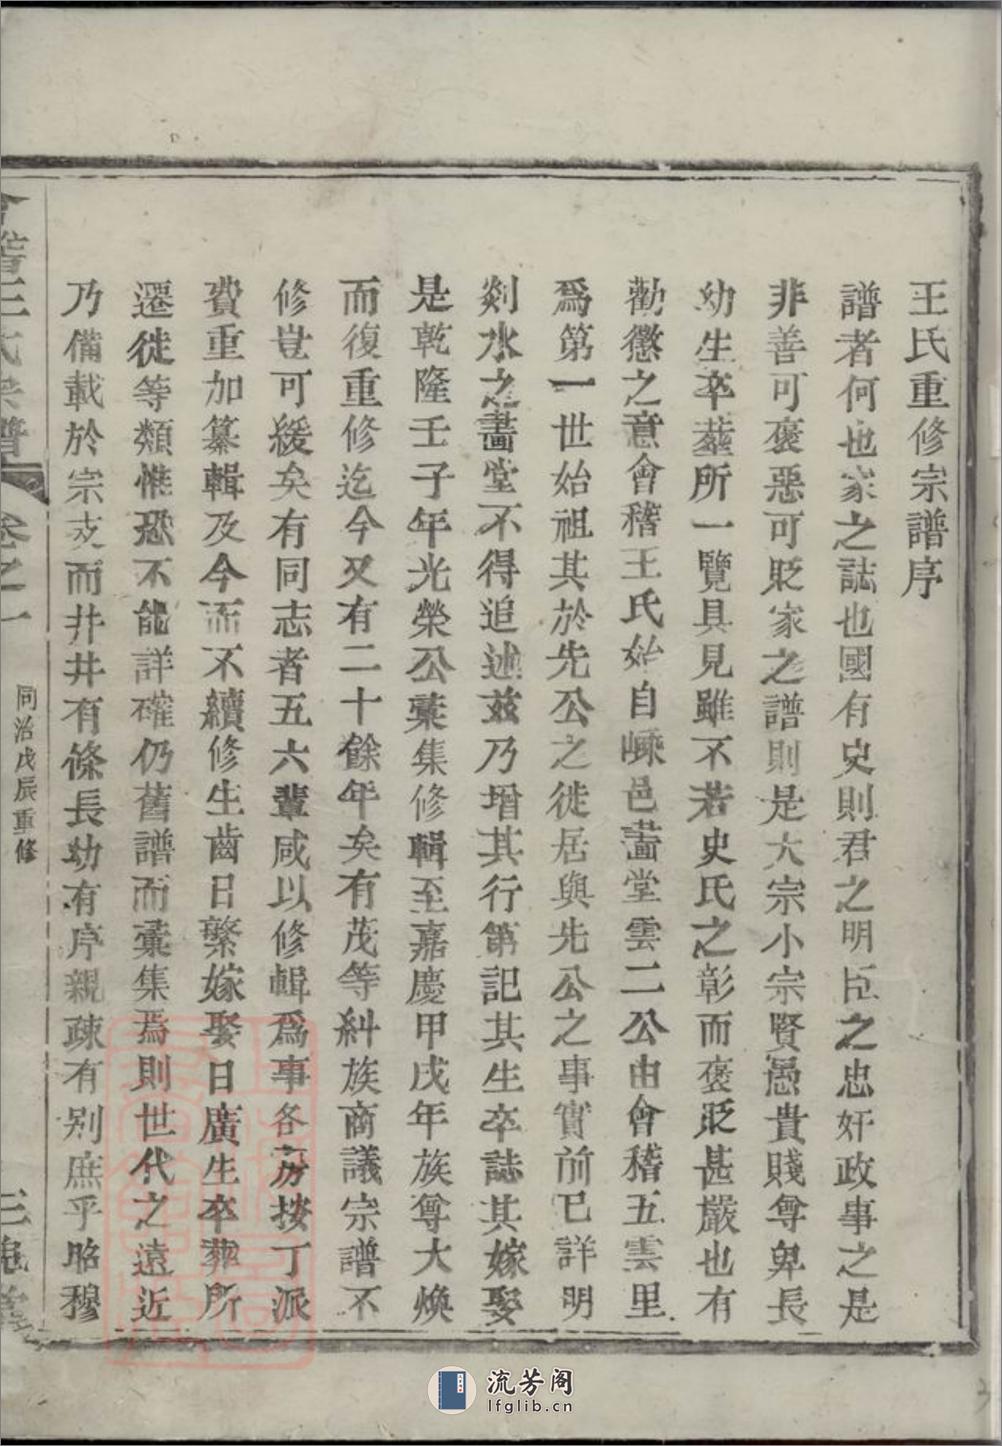 王氏重修宗譜序
譜者何也家之誌也國有史則君之明臣之忠奸政事之是
非善可褒惡可貶家之譜則是大宗小宗賢愚貴賤尊卑長
幼生卒塟所一覽具見雖不若史氏之彰而褒貶甚嚴也有
勸懲之意會稽王氏始自嵊邑畵堂雲二公由會稽五雲里
爲第一世始祖其於先公之徙居與先公之事實前已詳明
剡水之畵堂不得追述茲乃增其行第記其生卒誌其嫁娶
是乾隆壬子年光榮公彚集修輯至嘉慶甲戌年族尊大煥
而復重修迄今又有二十餘年矣有茂等糾族商議宗譜不
修豈可緩矣有同志者五六輩咸以修輯爲事各房按丁派
費重加纂輯及今而不續修生齒日繁嫁娶日廣生卒葬所
遷徙等類惟恐不能詳確仍舊譜而彚集焉則世代之遠近
乃備載於宗支而井井有條長幼有序親疎有别庶乎昭穆
會稽王氏宗譜
卷之一
同治戊辰重修
三槐堂
流芳阁
lfglib.cn